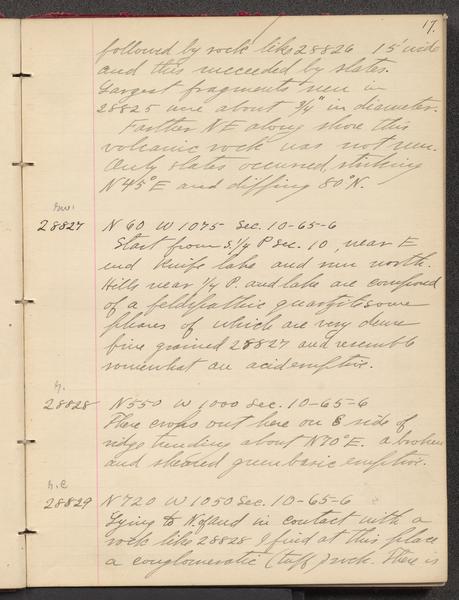 17.
followed by rock like 28826 15' wide
and this succeeded by slates.
Largest fragments seen in
28825 are about 3/4" in diameter.
Farther NE along shore this
volcanic rock was not seen.
Only slates occurred, striking
N45°E and dipping 80°N.
28827 N 60 W 1075 Sec. 10-65-6
Start from S. 1/4 P Sec. 10, near E
end Knife lake and run north.
Hills near 1/4 P. and lake are composed
of a feldspathic quartzite some
phases of which are very dense
fine grained 28827 and resemble
somewhat an acid eruptive.
28828 N550 W 1000 Sec. 10-65-6
There crops out here on E side of
ridge trending about N70°E. a broken
and sheared green basic eruptive.
28829 N720 W 1050 Sec. 10-65-6
Lying to N. of and in contact with a
rock like 28828 I find at this place
a conglomeratic (tuff) rock. There is